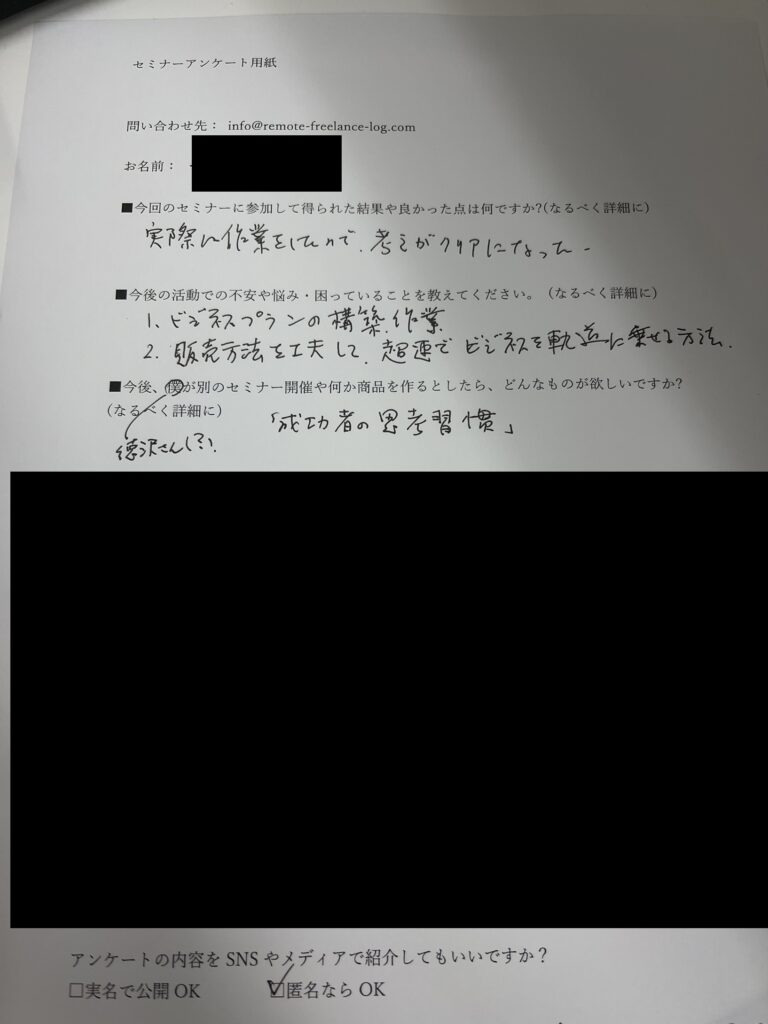 セミナーアンケート用紙
問い合わせ先： info@remote-freelance-log.com
お名前：
■今回のセミナーに参加して得られた結果や良かった点は何ですか?(なるべく詳細に)
実際に作業をしたので、考えがクリアになった。
■今後の活動での不安や悩み・困っていることを教えてください。（なるべく詳細に）
1、ビジネスプランの構築、作業
2、販売方法を工夫して、超速でビジネスを軌道に乗せる方法、
■今後、僕が別のセミナー開催や何か商品を作るとしたら、どんなものが欲しいですか?
（なるべく詳細に）
徳沢さん(?)、
「成功者の思考習慣」
アンケートの内容をSNSやメディアで紹介してもいいですか？
□実名で公開OK ☑匿名ならOK